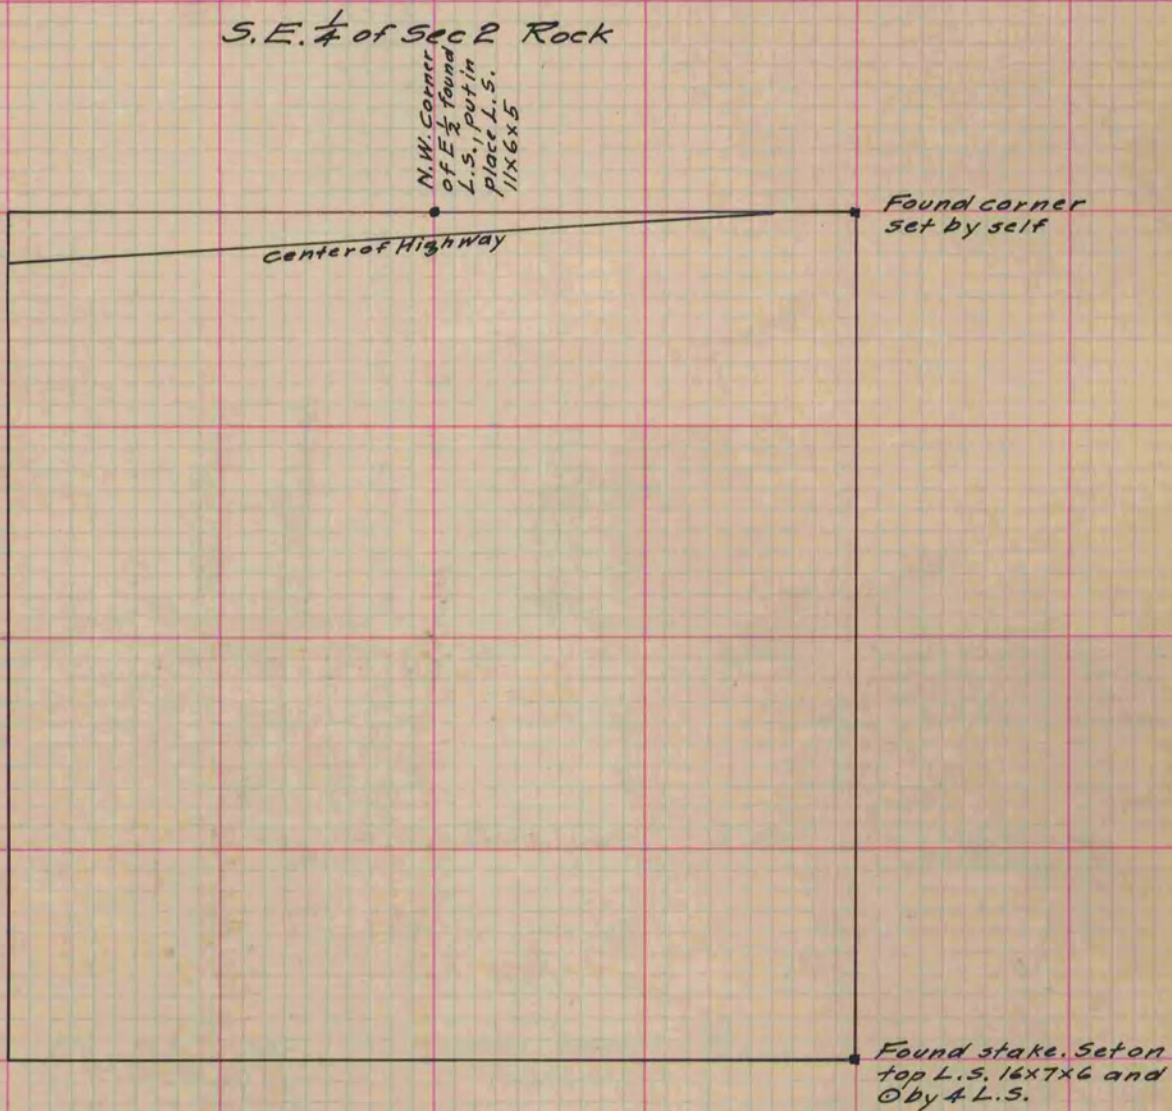 S.E. 1/4 of Sec 2 Rock
N.W. Corner
of E 1/2 found
L.S., put in
place L.S.
11x6x5
Found corner
set by self
Center of Highway
Found stake. Set on
top L.S. 16x7x6 and
⊙ by 4 L.S.